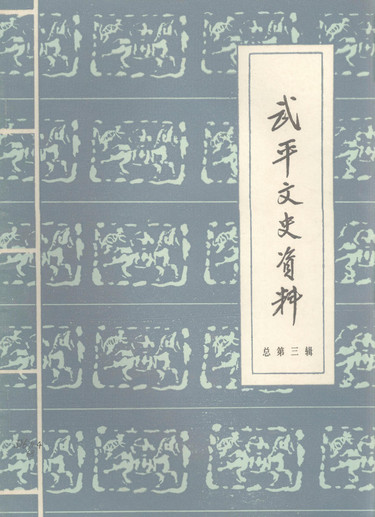 武平文史资料
总第三辑